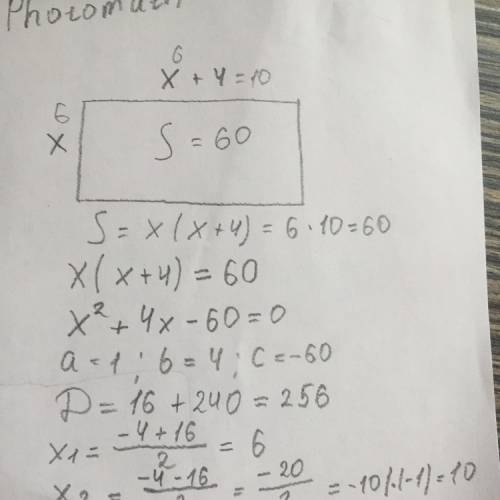 Photomath
6
x + 4 = 10
6
x
S = 60
S = x(x+4) = 6 · 10 = 60
x(x+4) = 60
x² + 4x - 60 = 0
a = 1; b = 4; c = -60
D = 16 + 240 = 256
x1 = (-4 + 16)/2 = 6
x2 = (-4 - 16)/2 = -20/2 = -10 /·(-1) = 10